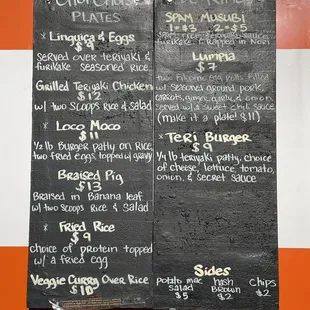 PLATES
* Linguica & Eggs
$9
Served over Teriyaki &
furikake seasoned Rice
Grilled Teriyaki Chicken
$12
w/ two scoops rice & salad
* Loco Moco
$11
1/2 lb Burger patty on Rice,
two fried eggs, topped w/ gravy
Braised Pig
$13
Braised in Banana leaf
w/ two scoops Rice & Salad
* Fried Rice
$9
choice of protein topped
w/ a fried egg
Veggie Curry Over Rice
$10
SPAM MUSUBI
1-$3 2-$5
wrapped in Nori
Lumpia
$7
w/ seasoned ground pork,
carrots, onion, garlic, & onion
served w/ a sweet chili sauce
(make it a plate! $11)
* Teri Burger
$9
1/4 lb teriyaki patty, choice
of cheese, lettuce, tomato,
onion, & secret sauce
Sides
potato mac salad $5
hash brown $2
chips $2